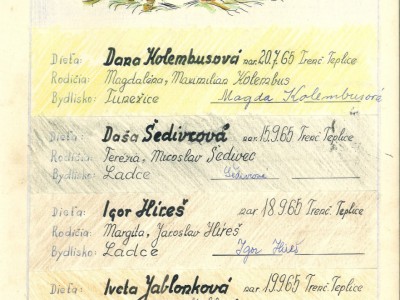 Dieťa: Dana Kolembusová nar. 20.7.65 Trenč. Teplice
Rodičia: Magdaléna, Maximilian Kolembus
Bydlisko: Tunežice Magda Kolembusová
Dieťa: Daša Šedivcová nar. 15.9.65 Trenč. Teplice
Rodičia: Terézia, Miroslav Šedivec
Bydlisko: Ladce Šedivcová
Dieťa: Igor Híreš nar. 18.9.65 Trenč. Teplice
Rodičia: Margita, Jaroslav Híreš
Bydlisko: Ladce Igor Híreš
Dieťa: Iveta Jablonková nar. 19.9.65 Trenč. Teplice